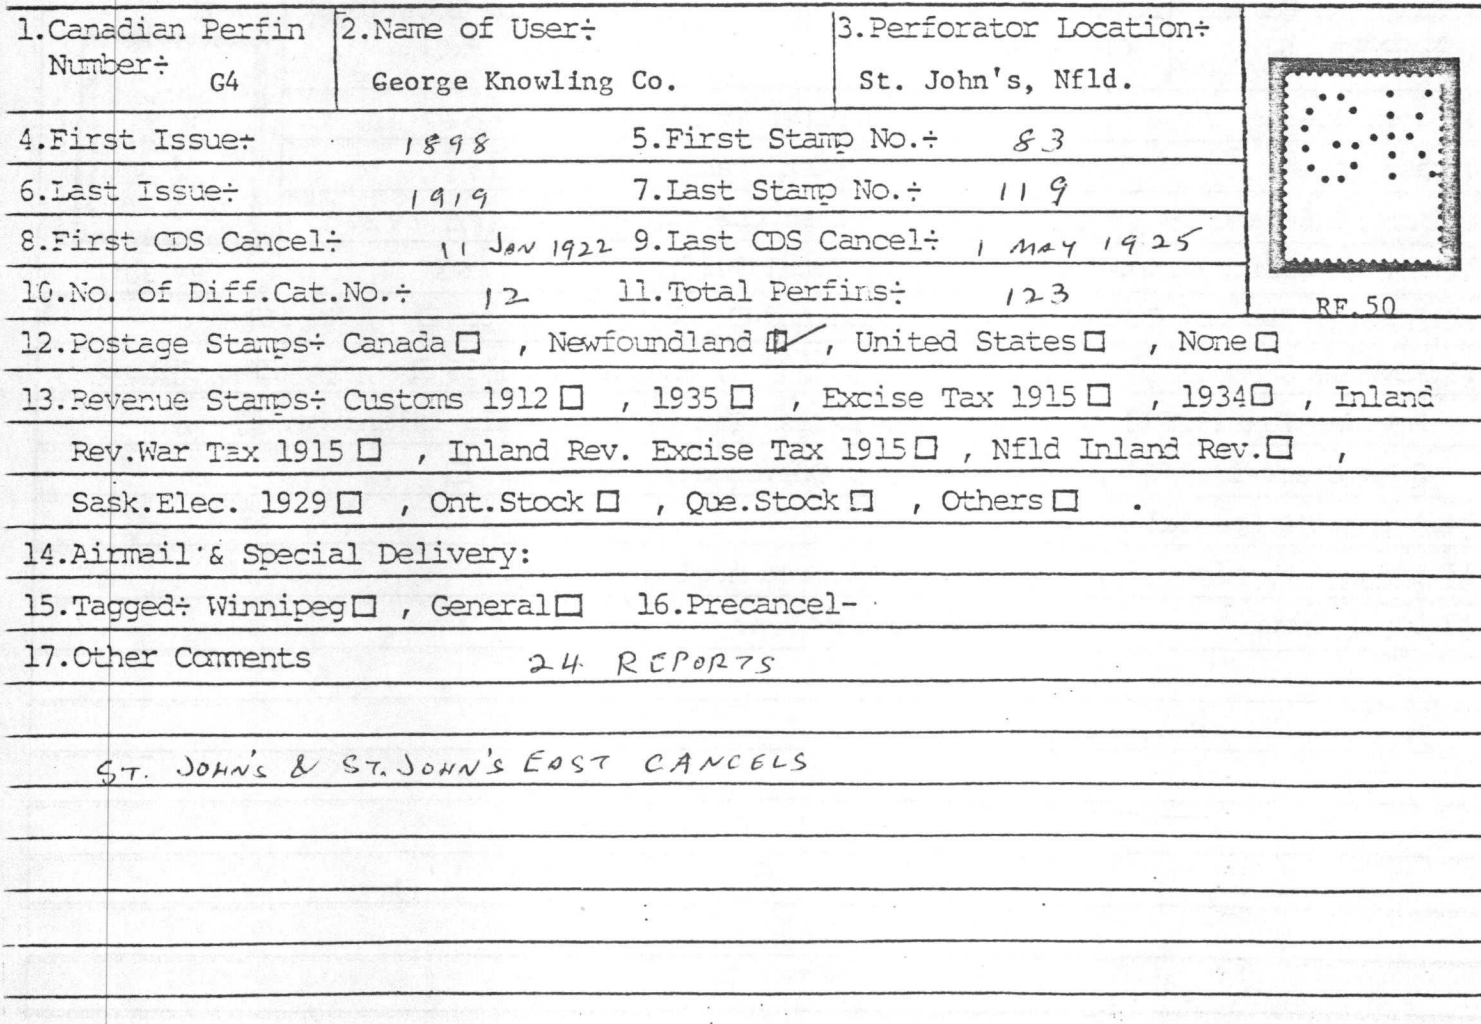 1.Canadian Perfin Number÷ G4
2.Name of User÷ George Knowling Co.
3.Perforator Location÷ St. John's, Nfld.
4.First Issue÷ 1898 5.First Stamp No.÷ 83
6.Last Issue÷ 1919 7.Last Stamp No.÷ 119
8.First CDS Cancel÷ 11 JAN 1922 9.Last CDS Cancel÷ 1 MAY 1925
10.No. of Diff.Cat.No.÷ 12 11.Total Perfins÷ 123
GK
RF.50
12.Postage Stamps÷ Canada ☐ , Newfoundland ☑ , United States ☐ , None ☐
13.Revenue Stamps÷ Customs 1912 ☐ , 1935 ☐ , Excise Tax 1915 ☐ , 1934 ☐ , Inland
Rev.War Tax 1915 ☐ , Inland Rev. Excise Tax 1915 ☐ , Nfld Inland Rev. ☐ ,
Sask.Elec. 1929 ☐ , Ont.Stock ☐ , Que.Stock ☐ , Others ☐ .
14.Airmail & Special Delivery:
15.Tagged÷ Winnipeg ☐ , General ☐ 16.Precancel-
17.Other Comments 24 REPORTS
ST. JOHN'S & ST. JOHN'S EAST CANCELS